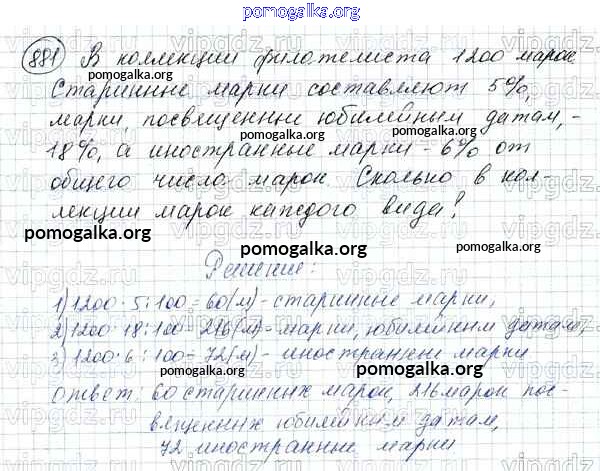 pomogalka.org
881 В коллекции филателиста 1200 марок
pomogalka.org
Старинные марки составляют 5%,
pomogalka.org
марки, посвещенные юбилейным датам, -
pomogalka.org
18%, а иностранные марки - 6% от
pomogalka.org
общего число марок. Сколько в кол-
лекции марок каждого вида?
pomogalka.org pomogalka.org
pomogalka.org
Решение:
1) 1200 · 5 : 100 = 60 (м) - старинные марки,
2) 1200 · 18 : 100 = 216 (м) - марки, юбилейным датам,
3) 1200 · 6 : 100 = 72 (м) - иностранные марки
ответ: 60 старинных марок, 216 марок пос-
вященных юбилейным датам,
72 иностранные марки